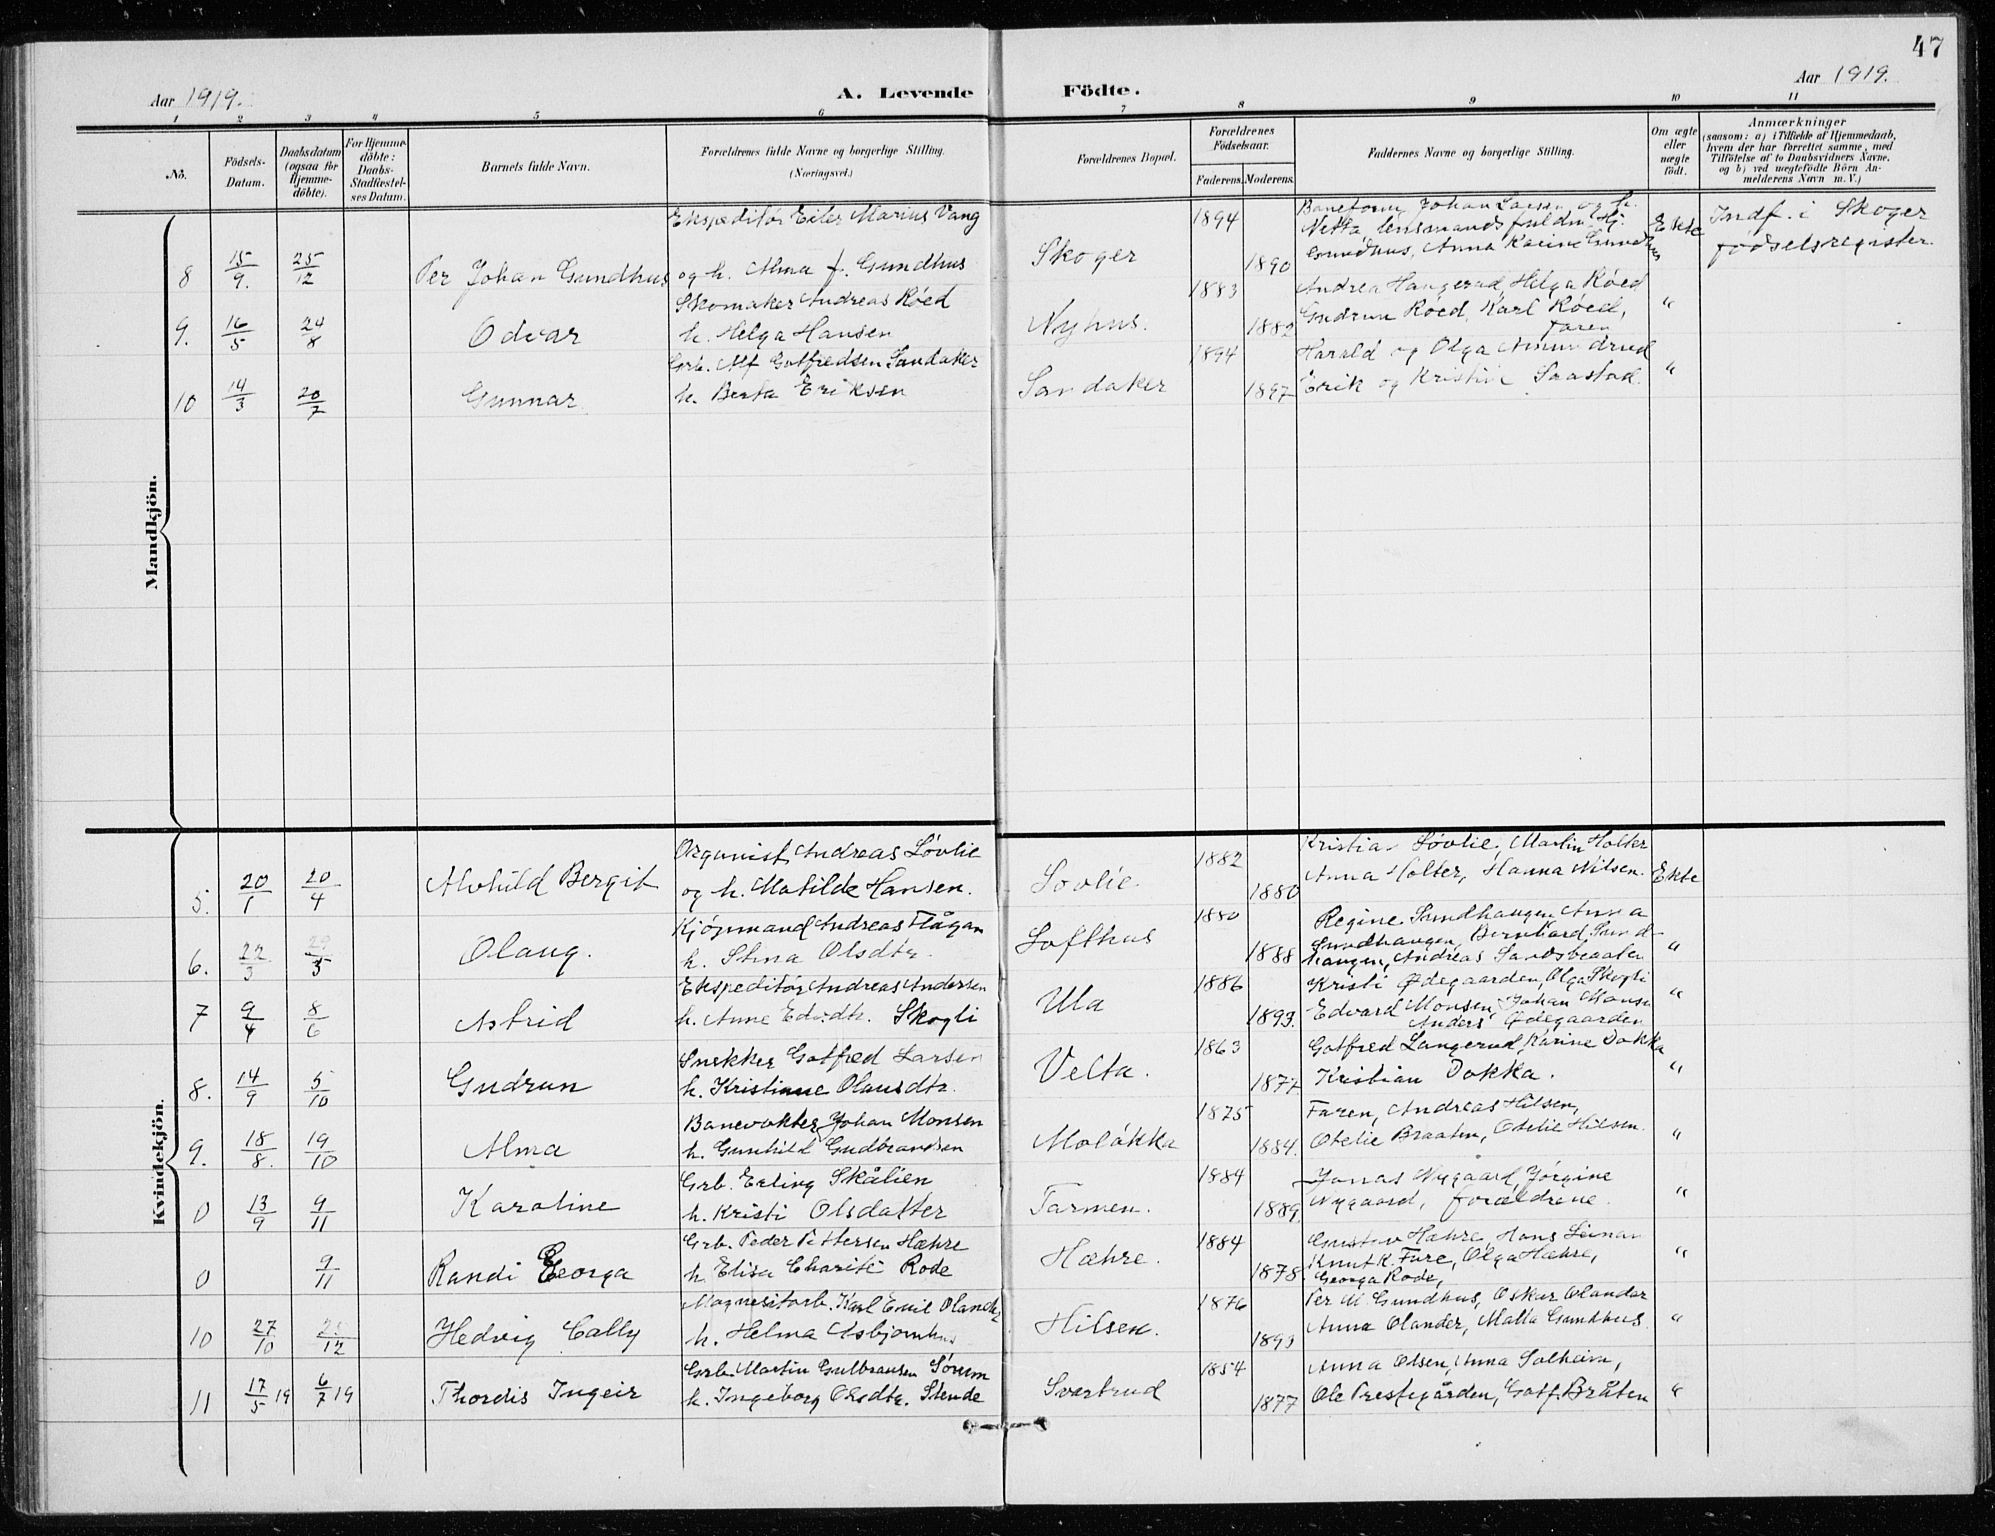 47
Aar 1919.
A. Levende Födte.
Aar 1919.
1 2 3 4 5 6 7 8 9 10 11
No.
Födsels-Datum.
Daabsdatum (ogsaa for Hjemme-döbte).
For Hjemme-döbte: Daabs-Stadfæstel-ses Datum.
Barnets fulde Navn.
Forældrenes fulde Navne og borgerlige Stilling.
(Næringsvei.)
Forældrenes Bopæl.
Forældrenes Födselsaar.
Faderens. Moderens.
Faddernes Navne og borgerlige Stilling.
Om ægte eller uægte födt.
Anmærkninger
(saasom: a) i Tilfælde af Hjemmedaab,
hvem der har forrettet samme, med
Tilföielse af to Daabsvidners Navne,
og b) ved uægtefödte Börn An-
melderens Navn m. V.)
Mandkjön.
Ekspeditör Eiler Marius Vang
8 15/9. 25/12 Per Johan Gundhus og h. Alma f. Gundhus
Skoger 1894 1890
Johan Larsen og h.
Netta lensmandsfuldm. Hj.
Gundhus, Anna Karine Gundhus
Ekte
Indf. i Skoger
fødselsregister.
Skomaker Andreas Röed
9. 16/5 24/8 Odvar h. Helga Hansen
Nyhus. 1883 1882
Andrea Haugerud, Helga Röed
Gudrun Röed, Karl Röed,
faren "
Grb. Alf Gotfredsen Sandaker
10 14/3 20/7 Gunnar h. Berta Eriksen
Sandaker 1894 1897
Harald og Olga Amundrud
Erik og Kristine Saastad. "
Kvindekjön.
Organist Andreas Lövlie
5. 20/1 20/4 Alvhild Bergit og h. Matilde Hansen.
Lovlie 1882 1880
Kristian Lövlie, Martin Holter
Anna Holter, Hanna Nilsen. Ekte
Kjöpmand Andreas Flågan
6. 22/3 Olaug. h. Stina Olsdtr.
Lofthus 1880 1888
Regine Sundhaugen, Anna
Sundhaugen, Bernhard Sund-
haugen, Andreas Sandsbraaten "
Ekspeditör Andreas Andersen
7 9/4 8/6 Astrid h. Anne Edv.dtr. Skogli
Ula 1886 1893.
Kristi Ødegaarden, Olga Skogli
Edvard Monsen, Johan Monsen
Anders Ødegaarden "
Snekker Gotfred Larsen
8. 14/9 5/10 Gudrun h. Kristiane Olausdtr.
Velta. 1863 1877
Gotfred Langerud, Karine Dokka
Kristian Dokka. "
Banevokter Johan Monsen
9. 18/8. 19/10 Alma h. Gunhild Gudbrandsen
Molåkka 1875 1884.
Faren, Andreas Hilsen,
Otelie Braaten, Otelie Hilsen. "
Grb. Erling Skålien
0 13/9 9/11 Karoline h. Kristi Olsdatter
Tarmen. 1884 1889.
Jonas Nygaard, Jörgine
Nygaard, forældrene. "
Grb. Peder Pettersen Hæhre
0 9/11 Randi Georga h. Elisa Charite Rode
Hæhre. 1884 1878
Gustav Hæhre, Hans
Knut K. Fure, Olga Hæhre,
Georga Rode, "
Magnesitarb. Karl Emil Olander
10 27/10 /12 Hedvig Cally h. Helma Asbjornhus
Hilsen. 1876 1893
Per M. Gundhus, Oskar Olander
Anna Olander, Matta Gundhus "
Grb. Martin Gulbransen Sörum
11 17/5 19 6/7 19 Thordis Ingeir h. Ingeborg Olsdtr. Stende
Svartrud 1854 1877
Anna Olsen, Anna Solheim,
Ole Prestegården, Gotf. Bråten "